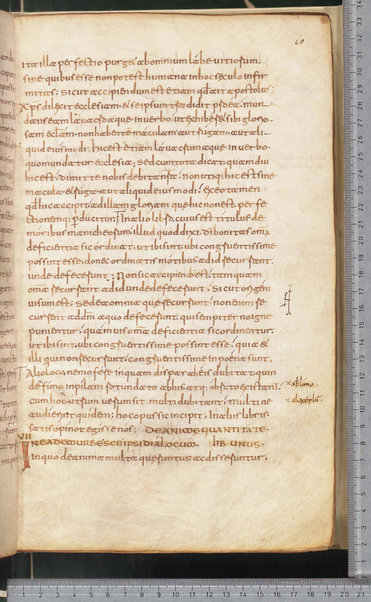 ita illa perfectio purget ab omnium labe uitiorum.
sine quibus esse non potest humana in hoc seculo infir
mitas; sicut accipiendum est etiam quod ait apostolus
xps dilexit ecclesiam. et se ipsum tradidit pro ea. mun
dans eam lauacro aquae in uerbo. ut exhiberet sibi glorio
sam eclam. non habentem maculam aut rugam. aut ali
quid eiusmodi; hic est etiam lauacrum aquae in uerbo.
quo mundatur ecclesia; sed cum tota dicat; quamdiu
hic est; dimitte nobis debita nra; non utique hic est sine
macula et ruga aut aliquid eiusmodi; ex eo tamen
qd hic accipit. ad illam gloriam quae hic non est. perfe
ctionemq; perducitur; In alio libro. cuius est titulus de
moribus manicheorum; illud quod dixi. di bonitas omia
deficientia sic ordinat. ut ibi sint. ubi congruentissime
possint esse. donec ordinatis motibus ad id recurrant.
unde defecerunt; Non sic accipiendum est. tamquam
omnia recurrant ad id unde defecerunt. sicut origeni
uisum est; sed ea omnia quae recurrunt. non enim re
currunt ad dm a quo defecerunt. qui sempiterno igne
punientur; quamuis omia deficientia sic ordinentur.
ut ibi sint. ubi congruentissime possint esse; quia et
illi qui non recurrunt. congruentissime in poena sunt.
Alio loco nemo fere inquam de scarabeis dubitat. quin
de fimo in pilam rotundato ab his atq; obruto existant;
cum hoc utrum uerum sit. multi dubitant; multi ne
audierint quidem; hoc opus sic incipit; In aliis libris.
satis opinor egisse nos; DE ANIMAE QUANTITATE.
VII IN EADEM URBE SCRIPSI DIALOGUM. LIB. UNUS.
In quo de anima multa quaeruntur ac disseruntur.